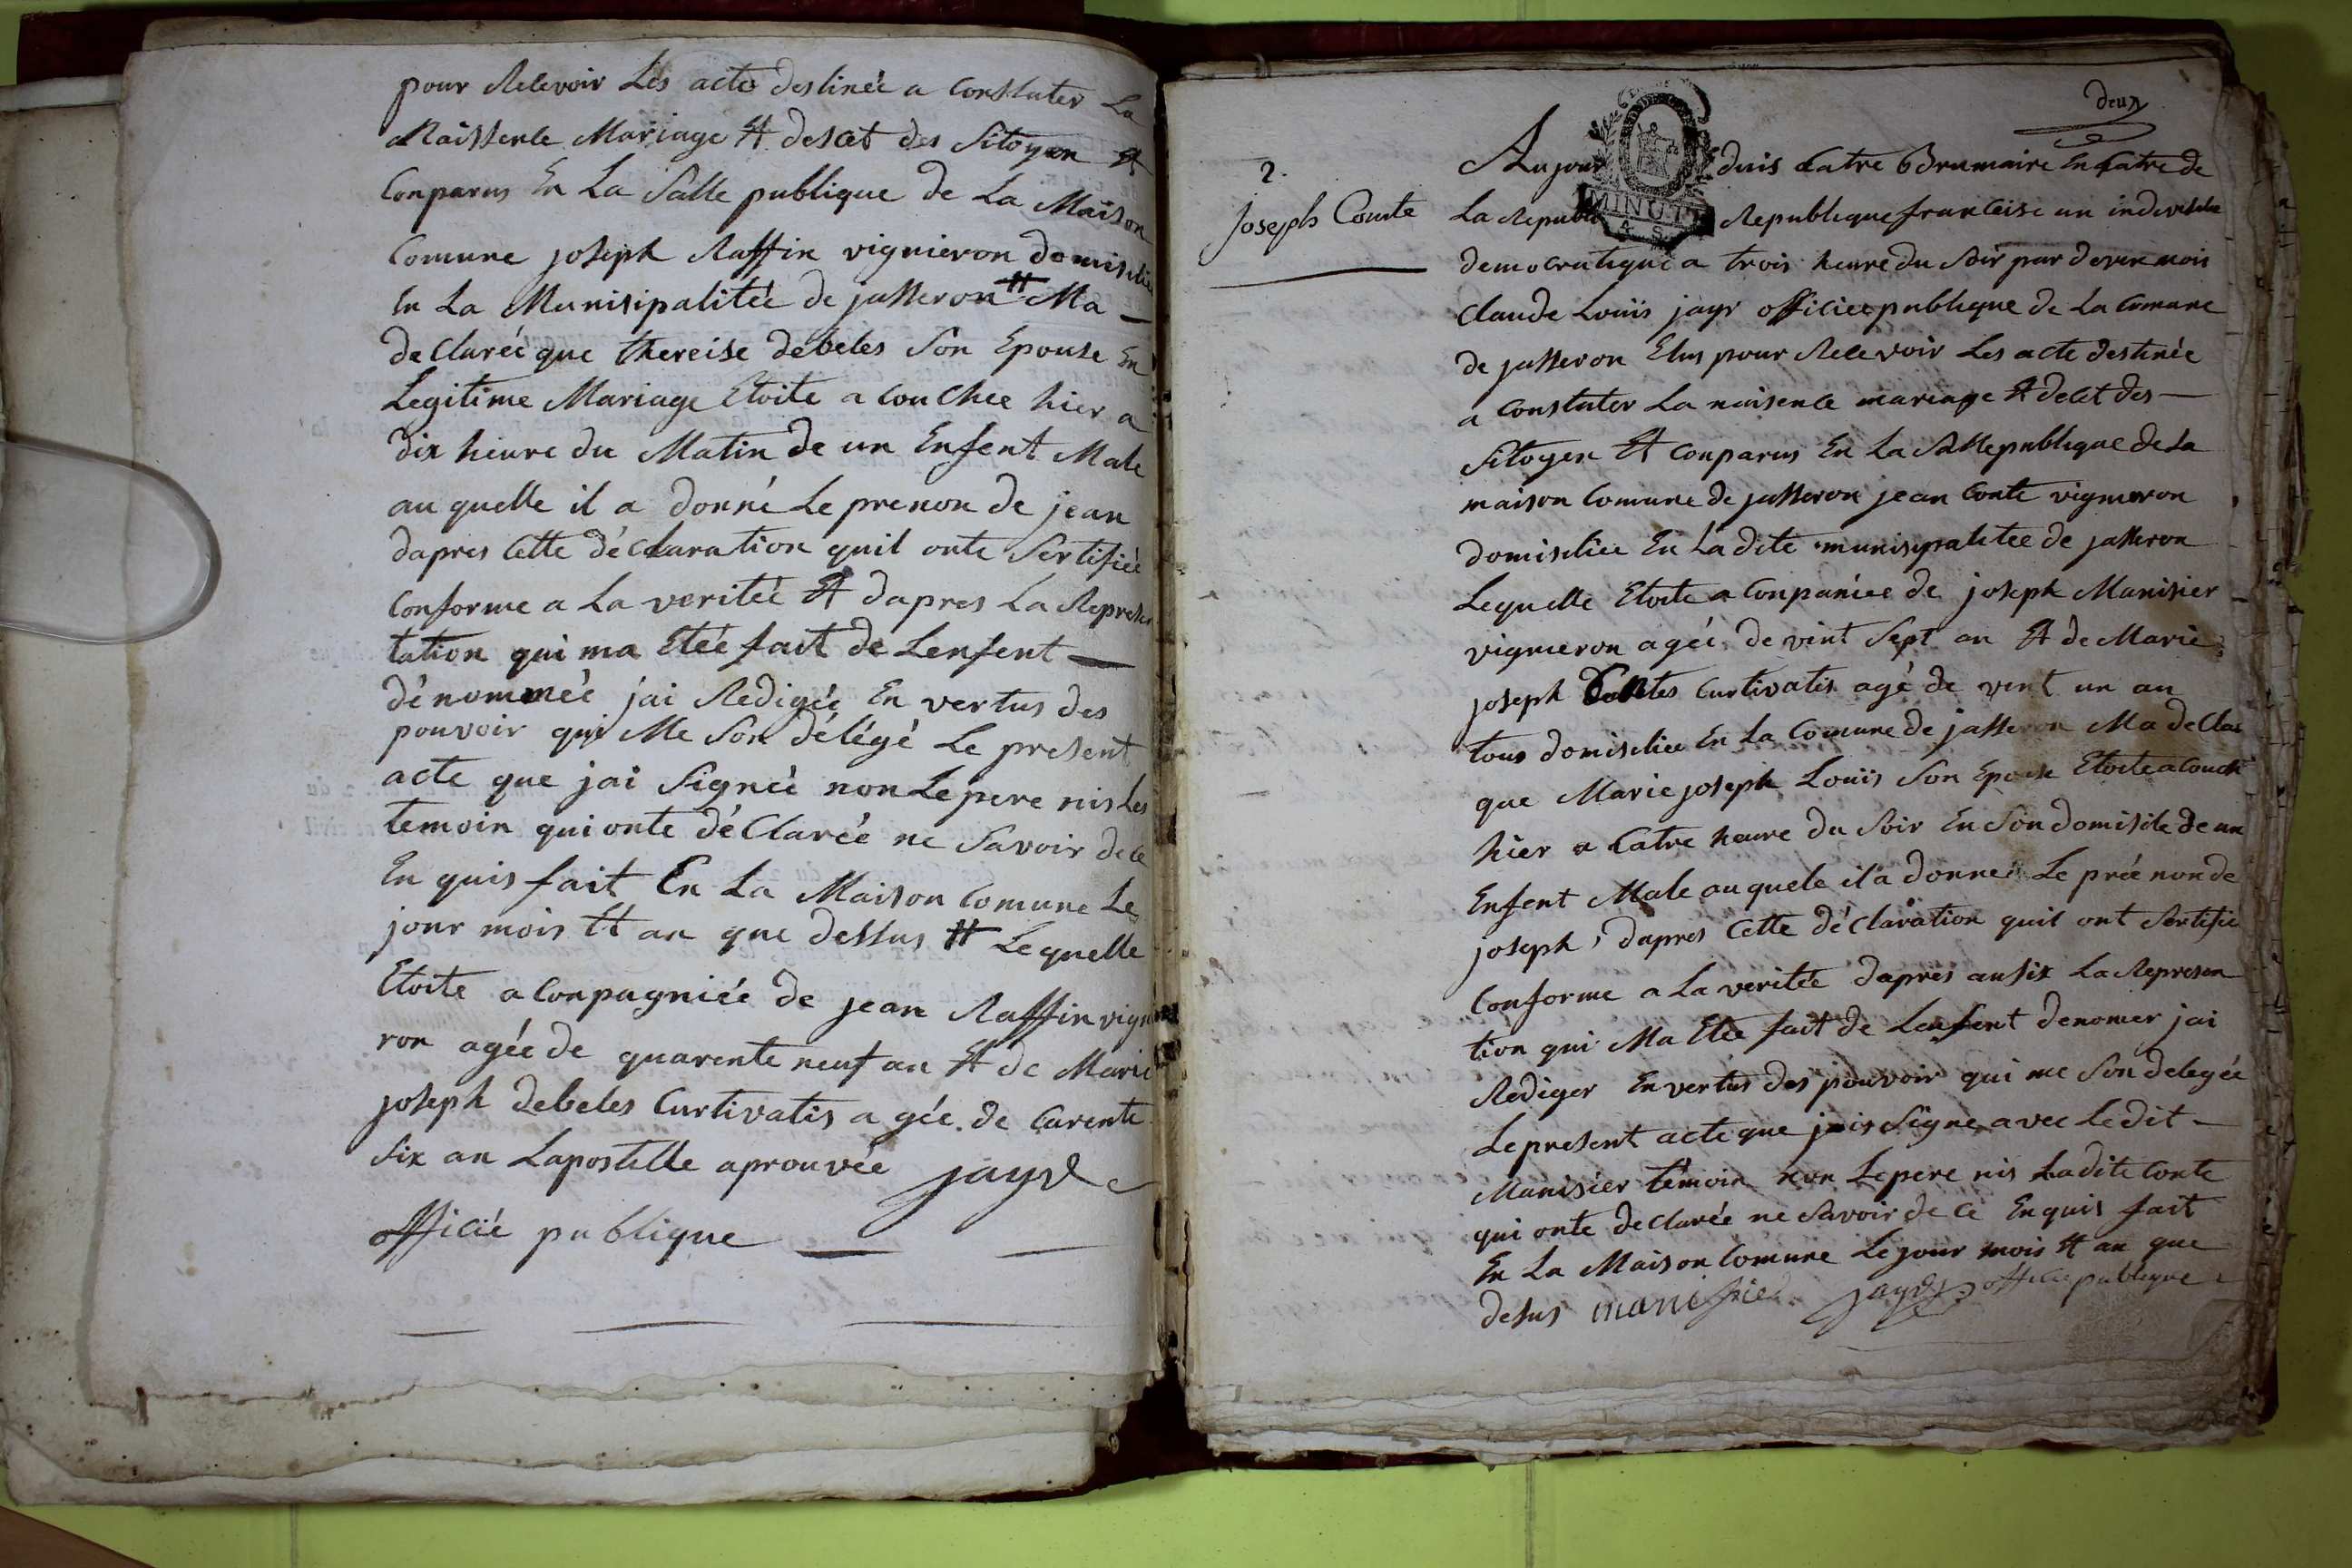 pour Relevoir Les acte destinée a Constater La
Naissenle Mariage Et deset des Sitoyen Et
Conparus En La Salle publique de La Maison
Comune joseph Raffin vignieron domisilie
En La Munisipalitée de jasseron # Ma
declarée que thereise debeles Son Epouse En
Legitime Mariage Etoite a Couchee hier a
dix heure du Matin de un Enfent Male
au quelle il a donné Le prenon de jean
dapres Cette déclaration quil onte Sertifiée
Conforme a La veritée Et dapres La Represen
tation qui ma Etée fait de Lenfent
dénommée jai Redigée En vertus des
pouvoir qui Me Son délégé Le present
acte que jai Signée non Le pere nis Les
temoin qui onte déClarée ne Savoir de ce
En quis fait En La Maison Comune Le
jour mois Et an que dessus # Lequelle
Etoite a Conpagniée de jean Raffin vigni
ron agée de quarente neuf an Et de Marie
joseph debeles Curtivatis agée de Carente
Six an Lapostille aprouvée jayr
officié publique
deux
2.
Joseph Comte
MINUTE
Aujour duis Catre Brumaire En Catre de
La Republi Republique francaise un indivisible
democratique a trois heure du Soir par devan mois
Claude Louïs jayr officiee publique de La Comune
de jasseron Elus pour Relevoir Les acte destinée
a Constater La naisenle mariage Et decet des
Sitoyen Et Conparus En La Salle publique de La
maison Comune de jasseron jean Conte vigneron
domisiliee En La dite munisipalitée de jasseron
Lequelle Etoite a Conpaniee de joseph Manisier
vignieron agée de vint Sept an Et de Marie
joseph Contes Curtivatis agé de vent un an
tous domisiliee En La Comune de jasseron Ma decla
que Marie joseph Louïs Son Epouse Etoite a Couch
hier a Catre heure du Soir En Son domisile de un
Enfent Male au quele il a donneé Le prée non de
joseph, dapres Cette déClaration quil ont Sertifie
Conforme a La veritée dapres ausix La Represen
tion qui Ma Etée fait de Lenfent denomer jai
Rediger En vertus des pouvoir qui me Son delegée
Le present acte que jais Signe avec Le dit
Manisier témoin non Le pere nis La dite Conte
qui onte declarée ne Savoir de ce En quis fait
En La Maison Comune Le jour mois Et an que
desus manisier jayr officie publique